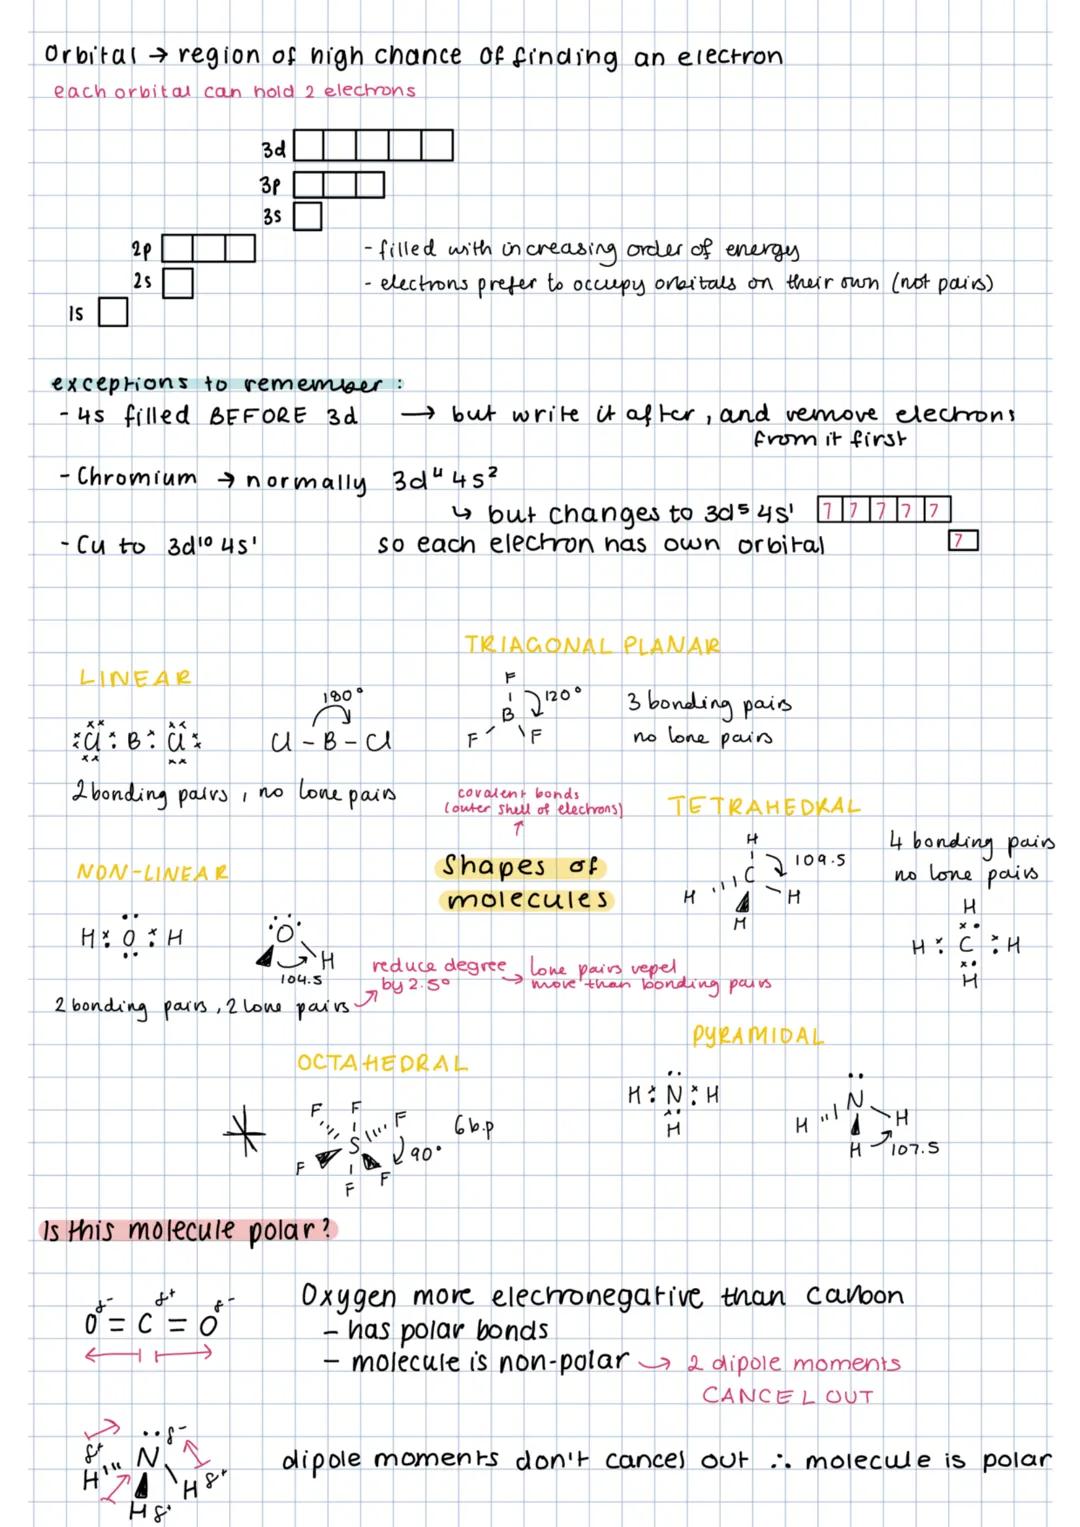 Orbital → region of high chance of finding an electron
each orbital can hold 2 electrons
3d
3p
3s
2p
- filled with increasing order of energy
2s
- electrons prefer to occupy orbitals on their own (not pairs)
1s
exceptions to remember:
- 4s filled BEFORE 3d → but write it after, and remove electrons
from it first
- Chromium → normally 3d⁴ 4s²
↳ but changes to 3d⁵ 4s¹ 1 1 1 1 1
- Cu to 3d¹⁰ 4s¹ so each electron has own orbital 1
TRIAGONAL PLANAR
LINEAR
F
B
F F
120°
3 bonding pairs
no lone pairs
Cl : B : Cl
180°
Cl - B - Cl
2 bonding pairs, no lone pairs
covalent bonds
(outer shell of electrons)
↑
Shapes of
molecules
TETRAHEDRAL
H
C
H H
H
109.5
4 bonding pairs
no lone pairs
H
H C H
H
NON-LINEAR
H O H
O
H
104.5
2 bonding pairs, 2 lone pairs
reduce degree
by 2.5°
→ lone pairs repel
more than bonding pairs
PYRAMIDAL
H N H
H
N
H H
H 107.5
OCTAHEDRAL
F F F
S
F F F
6 b.p
90°
Is this molecule polar?
δ- δ+ δ-
O = C = O
Oxygen more electronegative than carbon
- has polar bonds
- molecule is non-polar → 2 dipole moments
CANCEL OUT
δ-
δ+ N
H H δ+
H δ+
dipole moments don't cancel out ∴ molecule is polar